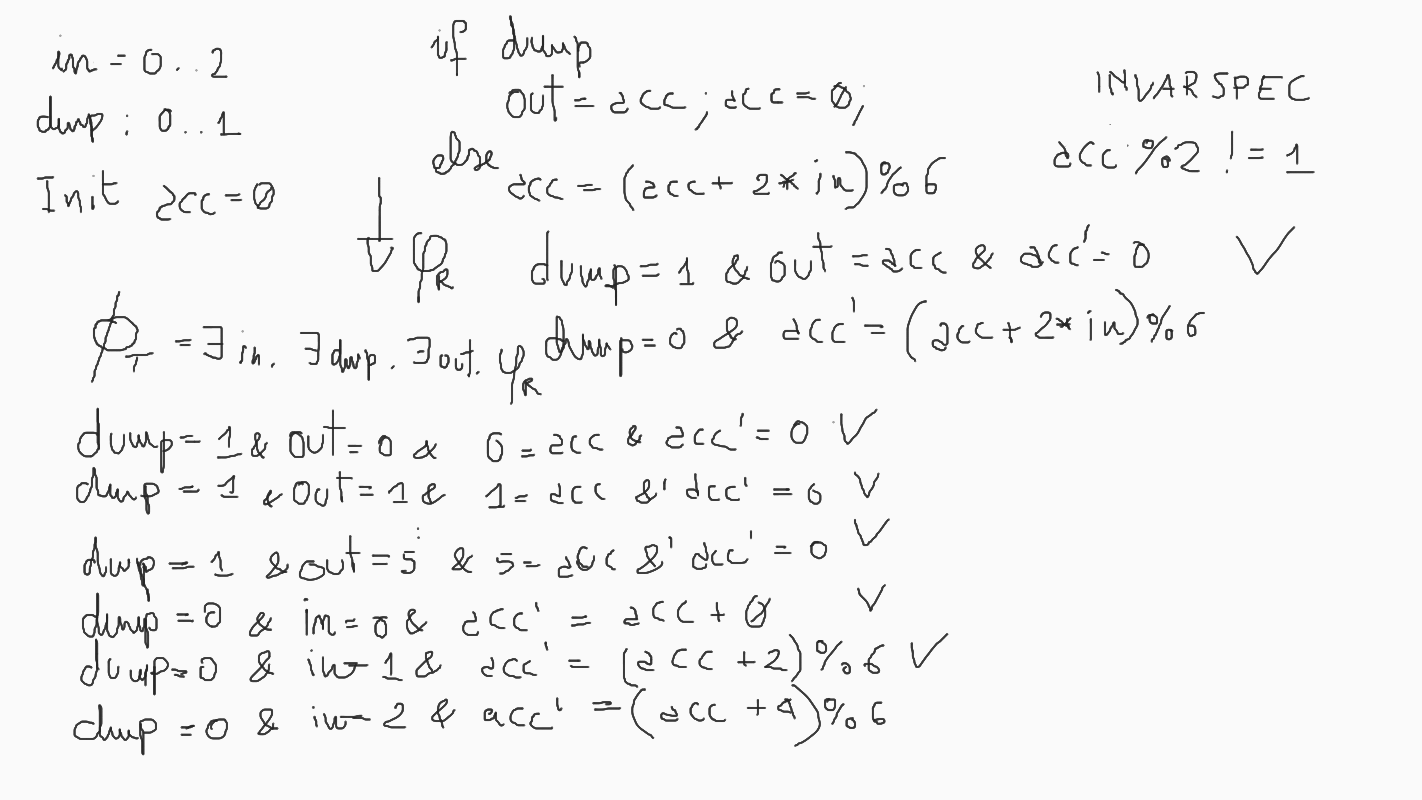 in = 0..2
dump : 0..1
Init acc = 0
if dump
out = acc ; acc = 0;
else
acc = (acc + 2 * in) % 6
INVARSPEC
acc % 2 != 1
φR dump = 1 & out = acc & acc' = 0 ∨
dump = 0 & acc' = (acc + 2 * in) % 6
ϕT = ∃ in. ∃ dump. ∃ out. φR
dump = 1 & out = 0 & 0 = acc & acc' = 0 ∨
dump = 1 & out = 1 & 1 = acc & acc' = 0 ∨
dump = 1 & out = 5 & 5 = acc & acc' = 0 ∨
dump = 0 & in = 0 & acc' = acc + 0 ∨
dump = 0 & in = 1 & acc' = (acc + 2) % 6 ∨
dump = 0 & in = 2 & acc' = (acc + 4) % 6